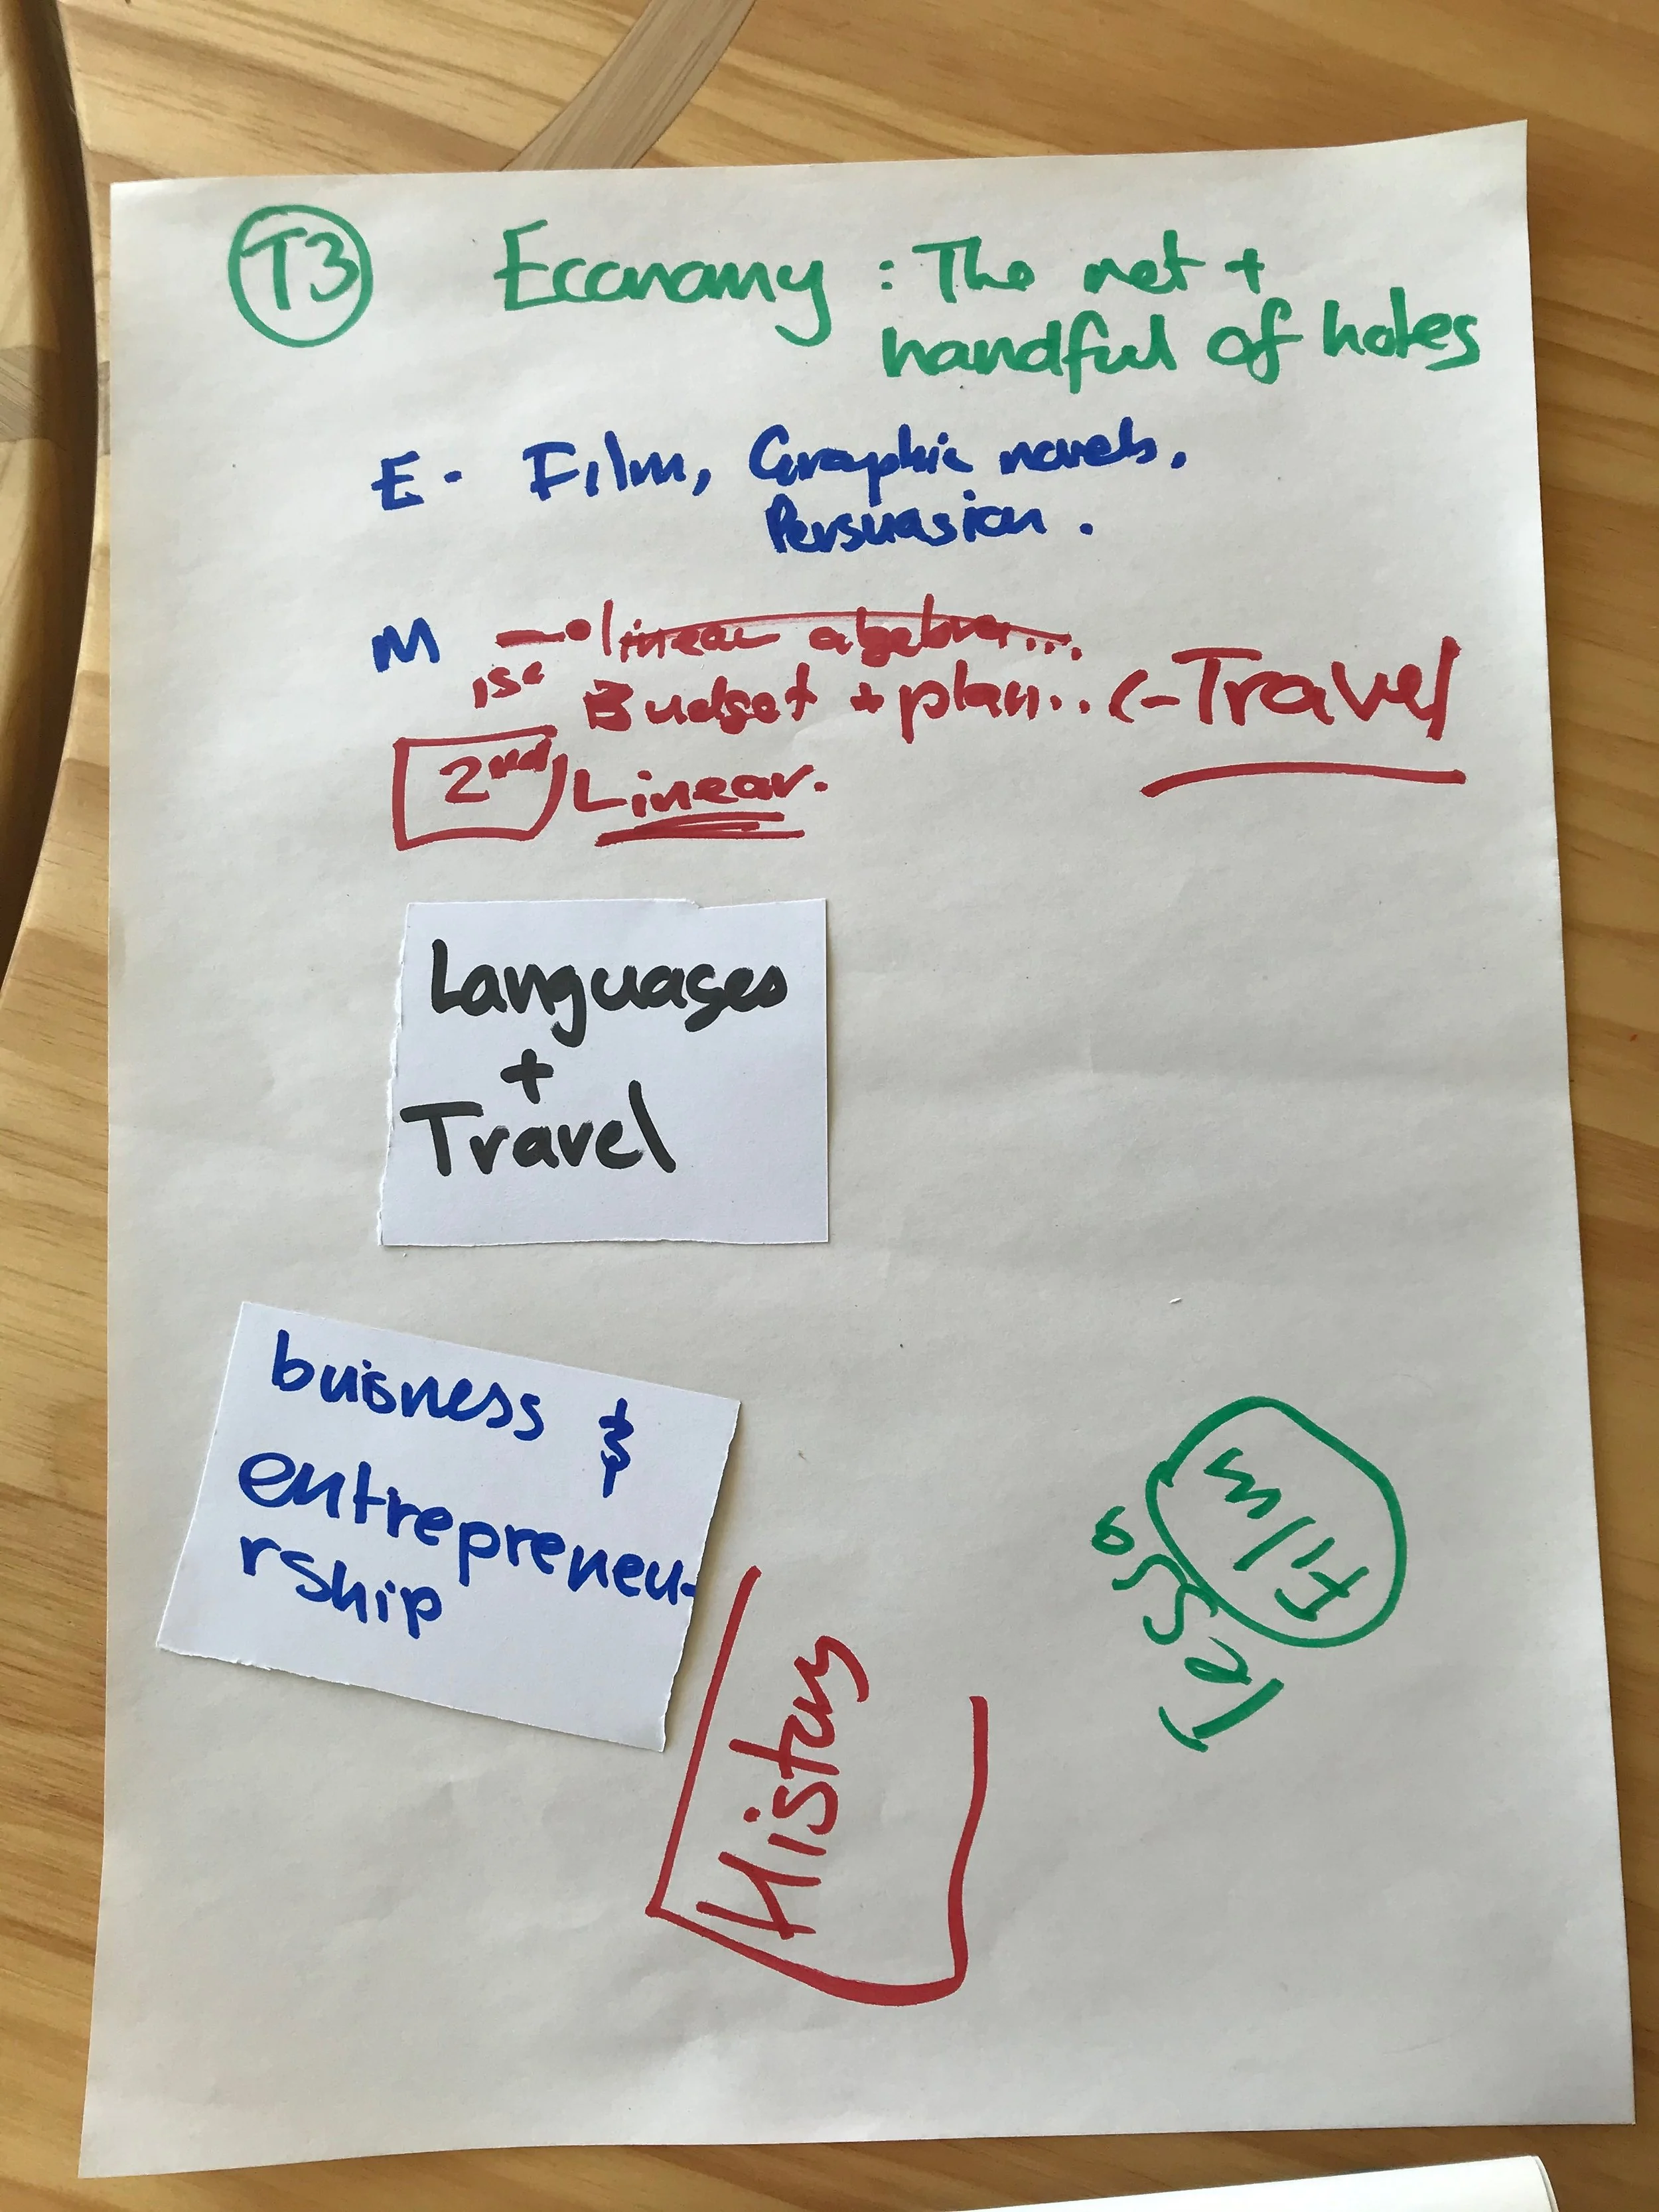 T3 Economy : The net +
handful of holes
E - Film, Graphic novels,
Persuasion.
M → linear algebra...
1st Budget + plan.. <- Travel
2nd Linear.
Languages
+
Travel
buisness &
entrepreneu-
rship
History
Film